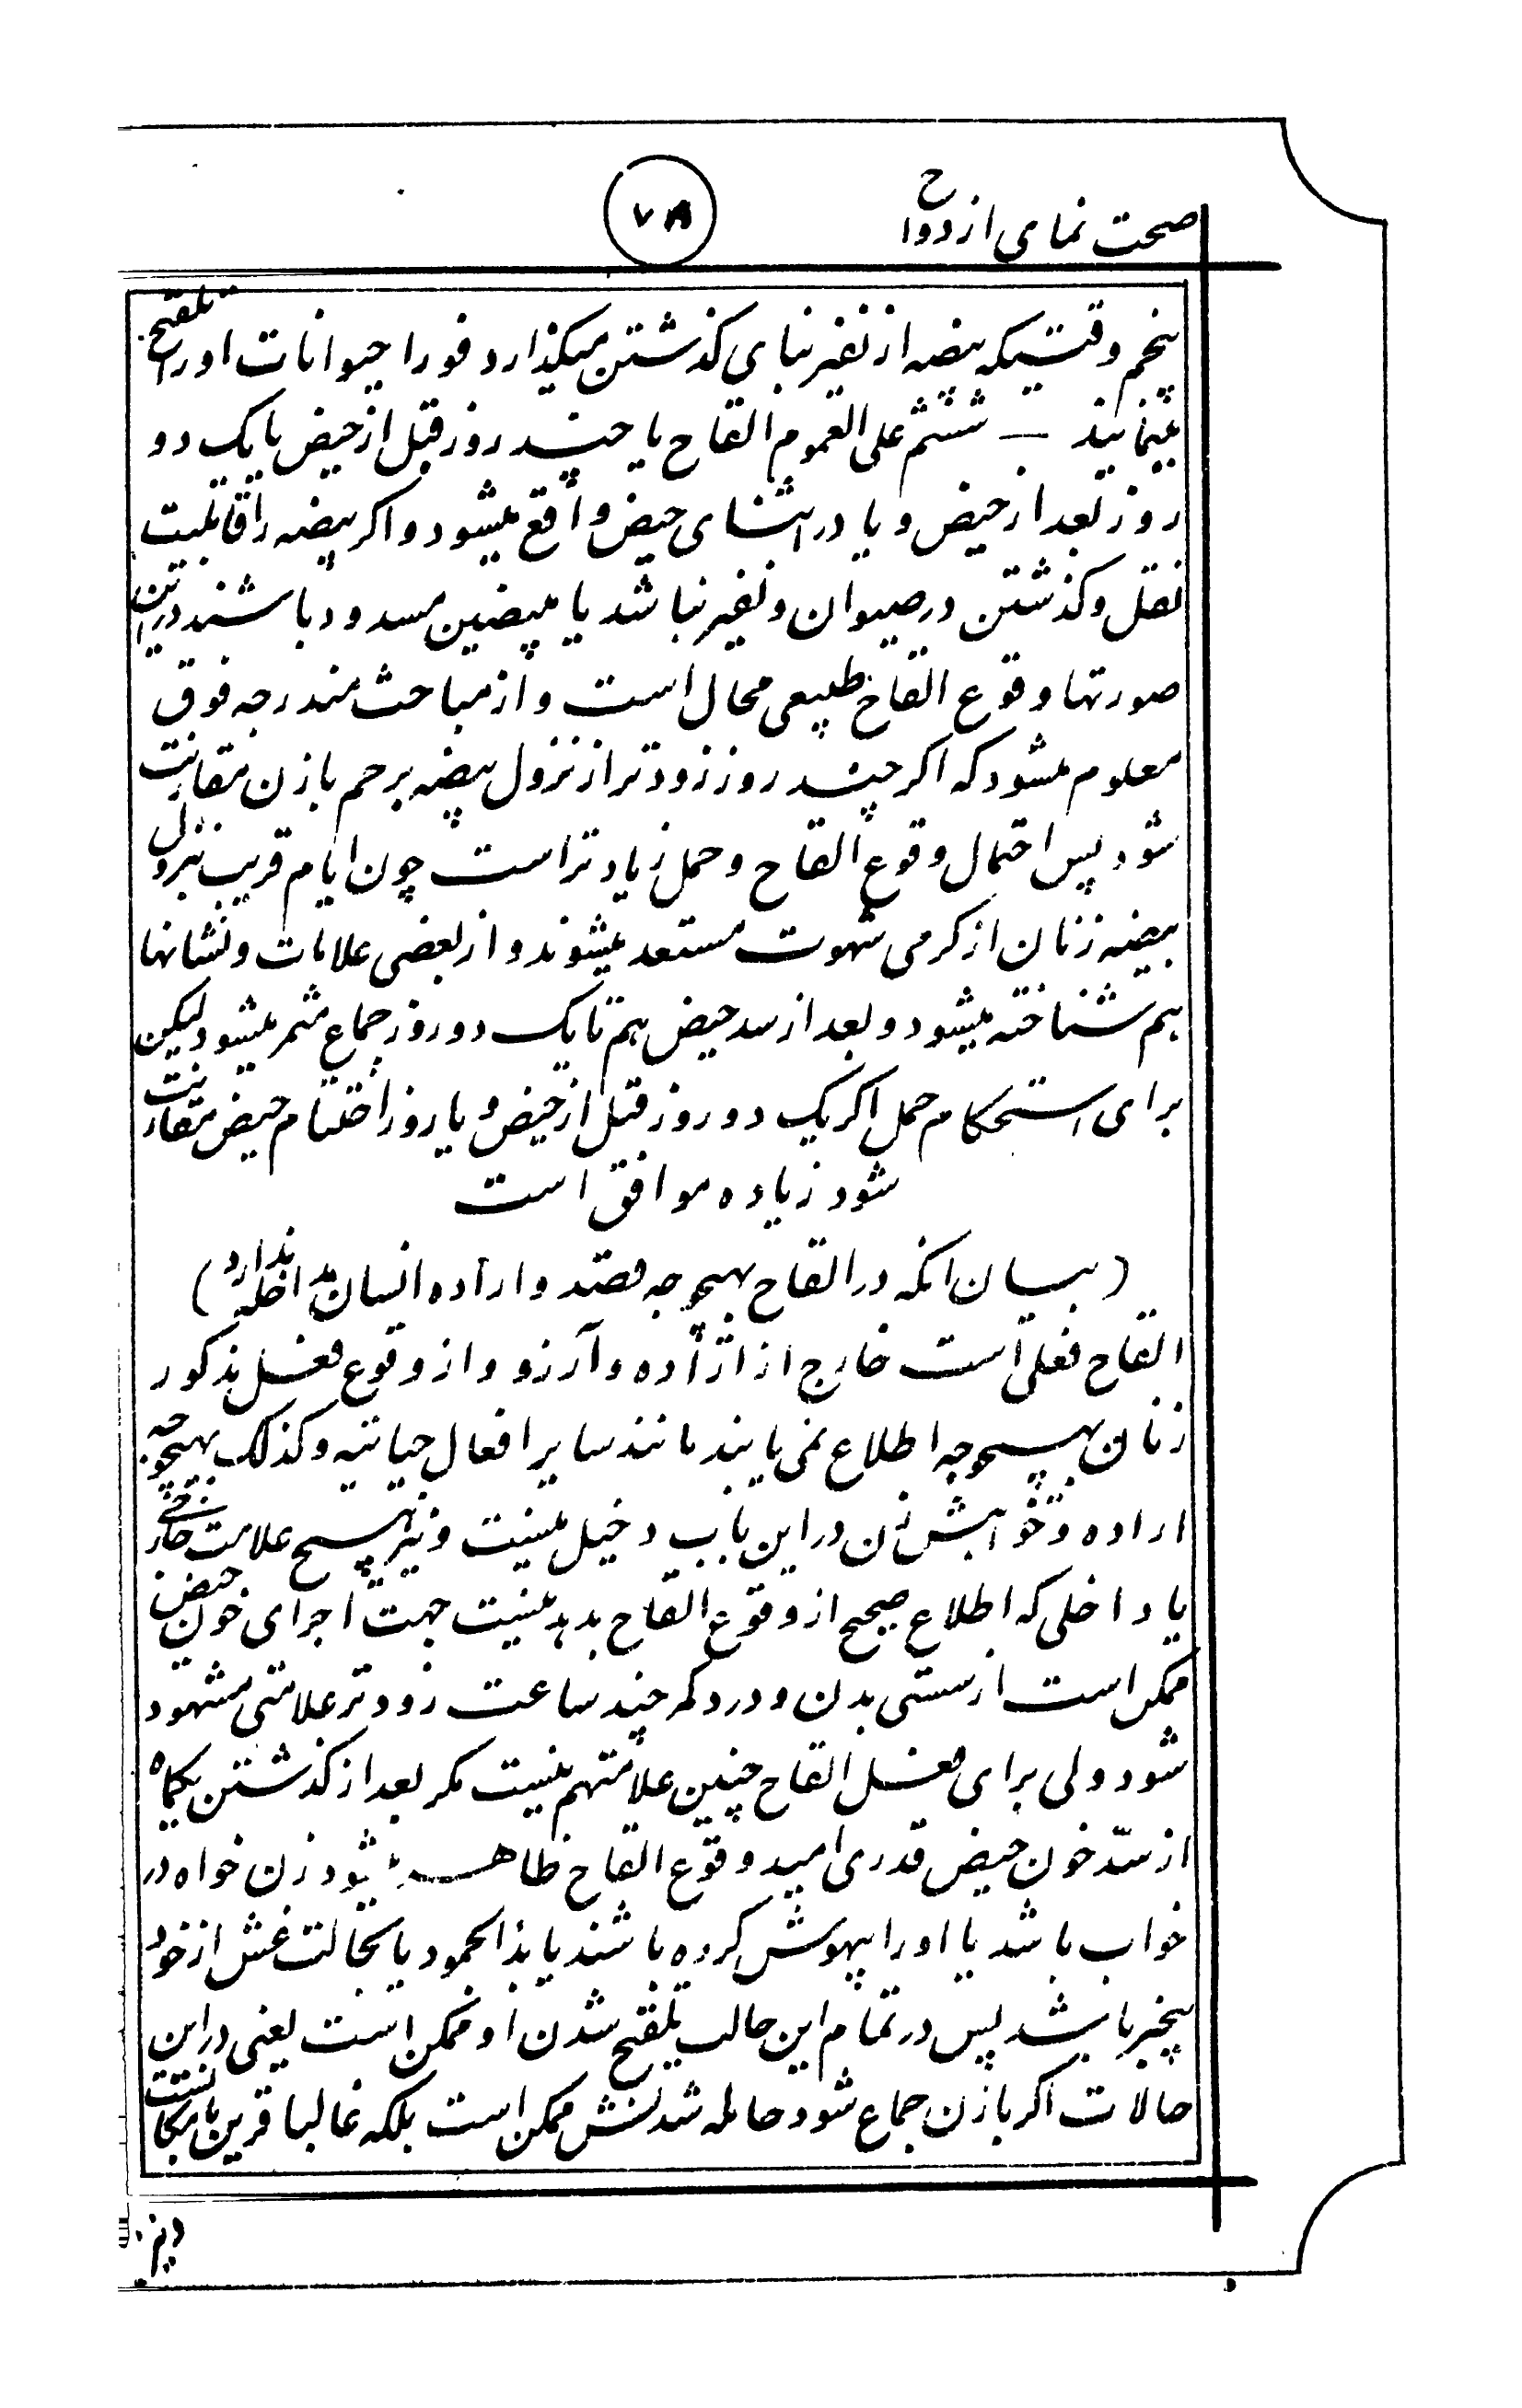 صحت نمای ازدواج
۷۸
پنجم وقتیکه بیضه از نفیر بنای کذشتن میکذارد فورا حیوانات اورا تلقیح
مینمایند — ششم علی العموم القاح یا چند روز قبل از حیض یا یک دو
روز بعد از حیض و یا در اثنای حیض واقع میشود و اکر بیضه را قابلیت
نقل و کذشتن در صیوان و نفیر نباشد یا مبیضین مسدود باشند در این
صورتها وقوع القاح طبیعی محال است و از مباحث مندرجه فوق
معلوم میشود که اکر چند روز زودتر از نزول بیضه برحم با زن مقارنت
شود پس احتمال وقوع القاح و حمل زیادتر است چون ایام قریب بنزول
بیضه زنان از کرمی شهوت مستعد میشوند و از بعضی علامات و نشانها
هم شناخته میشود و بعد از سد حیض هم تا یک دو روز جماع مثمر میشود لیکن
برای استحکام حمل اکر یک دو روز قبل از حیض و یا روز اختتام حیض مقارنت
شود زیاده موافق است
(بیان انکه در القاح بهیچوجه قصد و اراده انسان مداخله ندارد)
القاح فعلی است خارج از اراده و آرزو و از وقوع فعل مذکور
زنان بهیچوجه اطلاع نمی یابند مانند سایر افعال حیاتیه و کذلک بهیچوجه
اراده و خواهش زن در این باب دخیل نیست و نیز هیچ علامت خارجی
یا داخلی که اطلاع صحیح از وقوع القاح بدهد نیست جهت اجرای خون حیض
ممکن است از سستی بدن و درد کمر چند ساعت زودتر علامتی مشهود
شود ولی برای فعل القاح چنین علامتهم نیست مکر بعد از کذشتن یکماه
از سدّ خون حیض قدری امید وقوع القاح ظاهر میشود زن خواه در
خواب باشد یا اورا بیهوش کرده باشند یا بداء الجمود یا بحالت غش از خود
بیخبر باشد پس در تمام این حالت تلقیح شدن او ممکن است یعنی در این
حالات اکر با زن جماع شود حامله شدنش ممکن است بلکه غالبا قرین